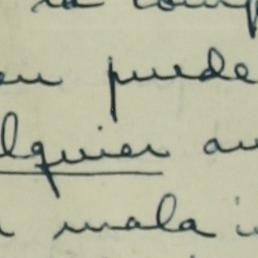 la comp
en puede
lquier au
mala i